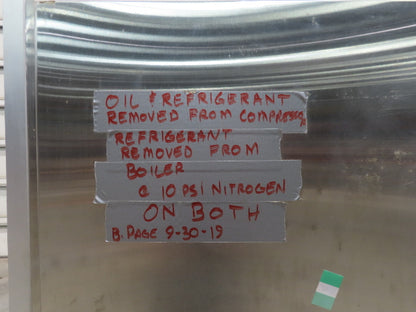 OIL & REFRIGERANT
REMOVED FROM COMPRESSOR
REFRIGERANT
REMOVED FROM
BOILER
@ 10 PSI NITROGEN
ON BOTH
B. PAGE 9-30-19